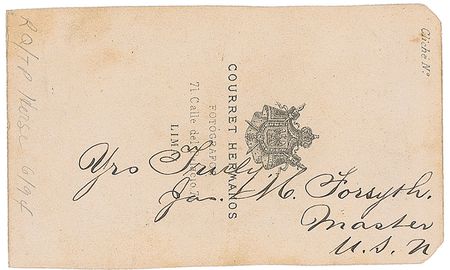 Yrs Truly
Jas. M. Forsyth.
Master
U. S. N
COURRET HERMANOS
FOTOGRAFOS
71 Calle de
LIMA
Cliché Nº